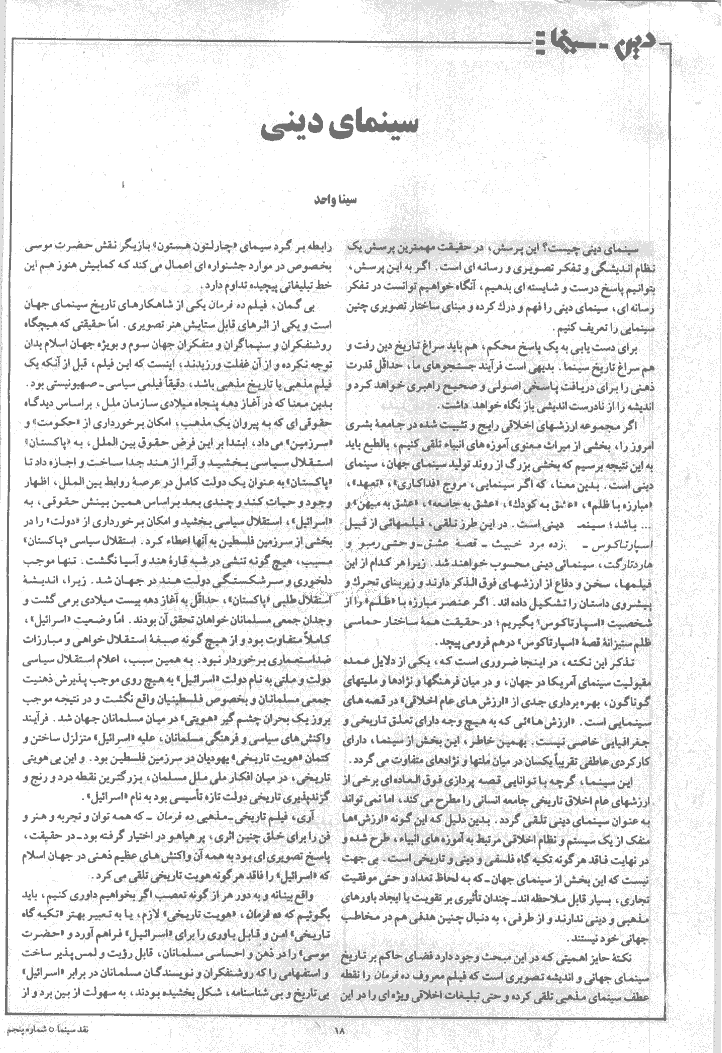 دین - سینما
سینمای دینی
سینا واحد
سینمای دینی چیست؟ این پرسش، در حقیقت مهمترین پرسش یک
نظام اندیشگی و تفکر تصویری و رسانه ای است. اگر به این پرسش،
بتوانیم پاسخ درست و شایسته ای بدهیم، آنگاه خواهیم توانست در تفکر
رسانه ای، سینمای دینی را فهم و درك کرده و مبنای ساختار تصویری چنین
سینمایی را تعریف کنیم.
برای دست یابی به یک پاسخ محکم، هم باید سراغ تاریخ دین رفت و
هم سراغ تاریخ سینما. بدیهی است فرآیند جستجوهای ما، حداقل قدرت
ذهنی را برای دریافت پاسخی اصولی و صحیح راهبری خواهد کرد و
اندیشه را از نادرست اندیشی باز نگاه خواهد داشت.
اگر مجموعه ارزشهای اخلاقی رایج و تثبیت شده در جامعهٔ بشری
امروز را، بخشی از میراث معنوی آموزه های انبیاء تلقی کنیم، بالطبع باید
به این نتیجه برسیم که بخشی بزرگ از روند تولید سینمای جهان، سینمای
دینی است. بدین معنا، که اگر سینمایی، مروج «فداکاری»، «تعهد»،
«مبارزه با ظلم»، «عشق به کودك»، «عشق به جامعه»، «عشق به میهن» و
... باشد؛ سینمـ دینی است. در این طرز تلقی، فیلمهائی از قبیل
اسپارتاکوس - زده مرد خبیث - قصهٔ عشق - وحشی رمبو و
هاردتارگت، سینمائی دینی محسوب خواهند شد. زیرا هر کدام از این
فیلمها، سخن و دفاع از ارزشهای فوق الذکر دارند و زیربنای تحرك و
پیشروی داستان را تشکیل داده اند. اگر عنصر مبارزه با «ظلم» را از
شخصیت «اسپارتاکوس» بگیریم؛ در حقیقت همهٔ ساختار حماسی
ظلم ستیزانهٔ قصهٔ «اسپارتاکوس» درهم فرو می پیچد.
تذکر این نکته، در اینجا ضروری است که، یکی از دلایل عمده
مقبولیت سینمای آمریکا در جهان، و در میان فرهنگها و نژادها و ملیتهای
گوناگون، بهره برداری جدی از «ارزش های عام اخلاقی» در قصه های
سینمایی است. «ارزش ها»ئی که به هیچ وجه دارای تعلق تاریخی و
جغرافیایی خاصی نیست. بهمین خاطر، این بخش از سینما، دارای
کارکردی عاطفی تقریباً یکسان در میان ملتها و نژادهای متفاوت می گردد.
این سینما، گرچه با توانایی قصه پردازی فوق العاده ای برخی از
ارزشهای عام اخلاق تاریخی جامعه انسانی را مطرح می کند، اما نمی تواند
به عنوان سینمای دینی تلقی گردد. بدین دلیل که این گونه «ارزش»ها
منفک از یک سیستم و نظام اخلاقی مرتبط به آموزه های انبیاء، طرح شده و
در نهایت فاقد هر گونه تکیه گاه فلسفی و دینی و تاریخی است. بی جهت
نیست که این بخش از سینمای جهان - که به لحاظ تعداد و حتی موفقیت
تجاری، بسیار قابل ملاحظه اند - چندان تأثیری بر تقویت یا ایجاد باورهای
مذهبی و دینی ندارند و از طرفی، به دنبال چنین هدفی هم در مخاطب
جهانی خود نیستند.
نکتهٔ حایز اهمیتی که در این مبحث وجود دارد فضای حاکم بر تاریخ
سینمای جهانی و اندیشه تصویری است که فیلم معروف ده فرمان را نقطه
عطف سینمای مذهبی تلقی کرده و حتی تبلیغات اخلاقی ویژه ای را در این
رابطه بر گرد سیمای «چارلتون هستون» بازیگر نقش حضرت موسی
بخصوص در موارد جشنواره ای اعمال می کند که کمابیش هنوز هم این
خط تبلیغاتی پیچیده تداوم دارد.
بی گمان، فیلم ده فرمان یکی از شاهکارهای تاریخ سینمای جهان
است و یکی از اثرهای قابل ستایش هنر تصویری. امّا حقیقتی که هیچگاه
روشنفکران و سنیماگران و متفکران جهان سوم و بویژه جهان اسلام بدان
توجه نکرده و از آن غفلت ورزیدند، اینست که این فیلم، قبل از آنکه یک
فیلم مذهبی یا تاریخ مذهبی باشد، دقیقاً فیلمی سیاسی - صهیونیستی بود.
بدین معنا که در آغاز دهه پنجاه میلادی سازمان ملل، براساس دیدگاه
حقوقی ای که به پیروان یک مذهب، امکان برخورداری از «حکومت» و
«سرزمین» می داد، ابتدا بر این فرض حقوق بین الملل، به «پاکستان»
استقلال سیاسی بخشید و آنرا از هند جدا ساخت و اجازه داد تا
«پاکستان» به عنوان یک دولت کامل در عرصهٔ روابط بین الملل، اظهار
وجود و حیات کند و چندی بعد براساس همین بینش حقوقی، به
«اسرائیل»، استقلال سیاسی بخشید و امکان برخورداری از «دولت» را در
بخشی از سرزمین فلسطین به آنها اعطاء کرد. استقلال سیاسی «پاکستان»
مسبب، هیچ گونه تنشی در شبه قارهٔ هند و آسیا نگشت. تنها موجب
دلخوری و سرشکستگی دولت هند در جهان شد. زیرا، اندیشهٔ
استقلال طلبی «پاکستان»، حداقل به آغاز دهه بیست میلادی برمی گشت و
وجدان جمعی مسلمانان خواهان تحقق آن بودند. امّا وضعیت «اسرائیل»،
کاملاً متفاوت بود و از هیچ گونه صبغهٔ استقلال خواهی و مبارزات
ضداستعماری برخوردار نبود. به همین سبب، اعلام استقلال سیاسی
دولت و ملتی به نام دولت «اسرائیل» به هیچ روی موجب پذیرش ذهنیت
جمعی مسلمانان و بخصوص فلسطینیان واقع نگشت و در نتیجه موجب
بروز یک بحران چشم گیر «هویتی» در میان مسلمانان جهان شد. فرآیند
واکنش های سیاسی و فرهنگی مسلمانان، علیه «اسرائیل» متزلزل ساختن و
کتمان «هویت تاریخی» یهودیان در سرزمین فلسطین بود. و این بی هویتی
تاریخی، در میان افکار ملی ملل مسلمان، بزرگترین نقطه درد و رنج و
گزندپذیری تاریخی دولت تازه تأسیسی بود به نام «اسرائیل».
آری، فیلم تاریخی - مذهبی ده فرمان - که همه توان و تجربه و هنر و
فن را برای خلق چنین اثری، پر هیاهو در اختیار گرفته بود - در حقیقت،
پاسخ تصویری ای بود به همه آن واکنش های عظیم ذهنی در جهان اسلام
که «اسرائیل» را فاقد هر گونه هویت تاریخی تلقی می کرد.
واقع بینانه و به دور هر از گونه تعصب اگر بخواهیم داوری کنیم، باید
بگوئیم که ده فرمان، «هویت تاریخی» لازم، یا به تعبیر بهتر «تکیه گاه
تاریخی» امن و قابل باوری را برای «اسرائیل» فراهم آورد و «حضرت
موسی» را در ذهن و احساسی مسلمانان، قابل رؤیت و لمس پذیر ساخت
و استفهامی را که روشنفکران و نویسندگان مسلمانان در برابر «اسرائیل»
بی تاریخ و بی شناسنامه، شکل بخشیده بودند، به سهولت از بین برد و از
۱۸
نقد سینما ○ شماره پنجم